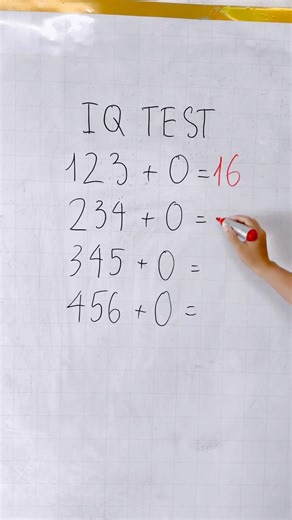 IQ TEST
123 + 0 = 16
234 + 0 =
345 + 0 =
456 + 0 =